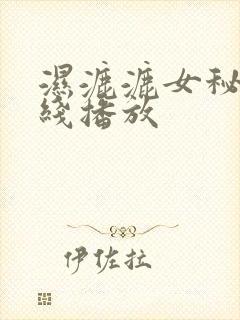 濕漉漉女秘
綫播放
伊佐拉